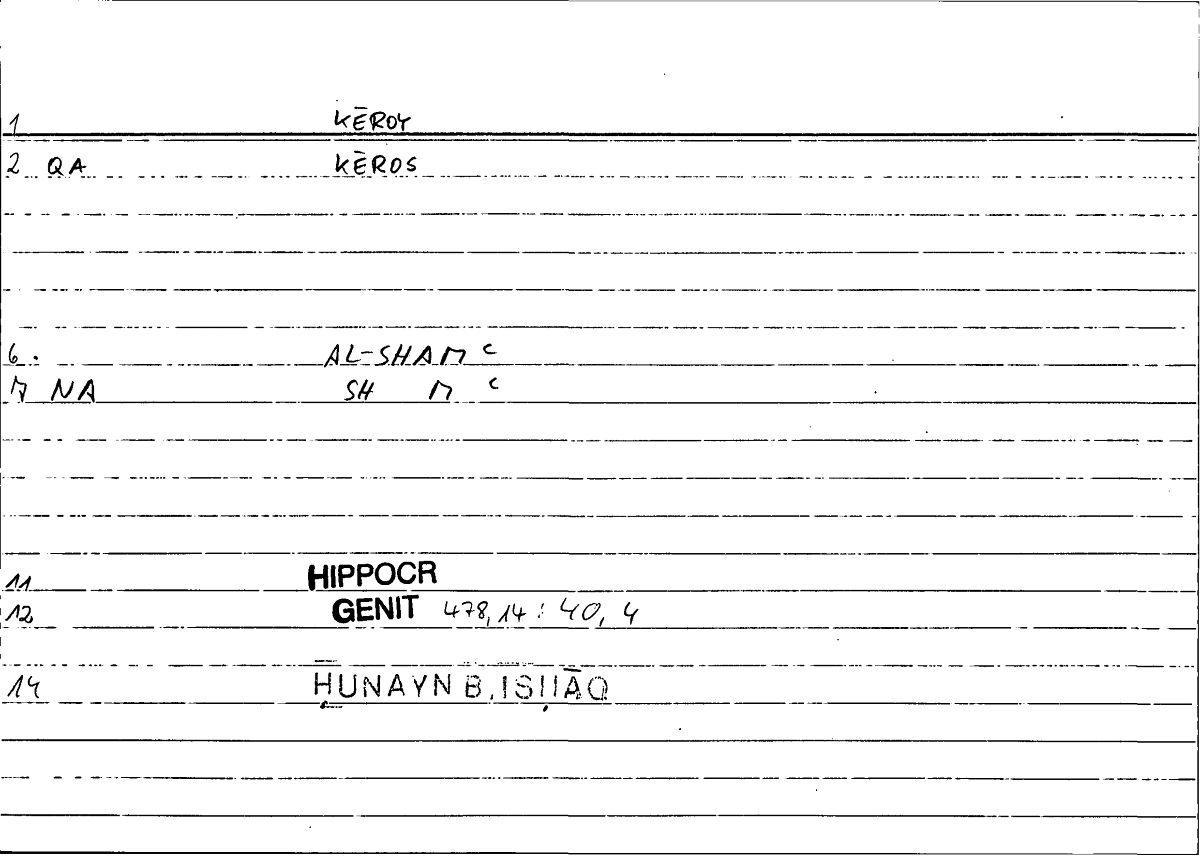 1 KĒROY
2 QA KĒROS
6. AL-SHAM ʿ
7 NA SH M ʿ
11 HIPPOCR
12 GENIT 478,14 : 40, 4
14 ḤUNAYN B. ISḤĀQ